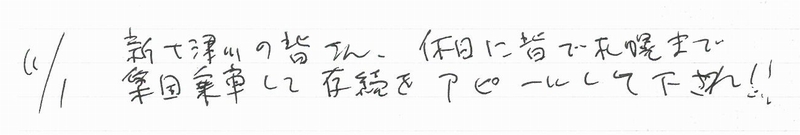 11/1 新十津川の皆さん、休日に皆で札幌まで
集団乗車して存続をアピールして下され!!